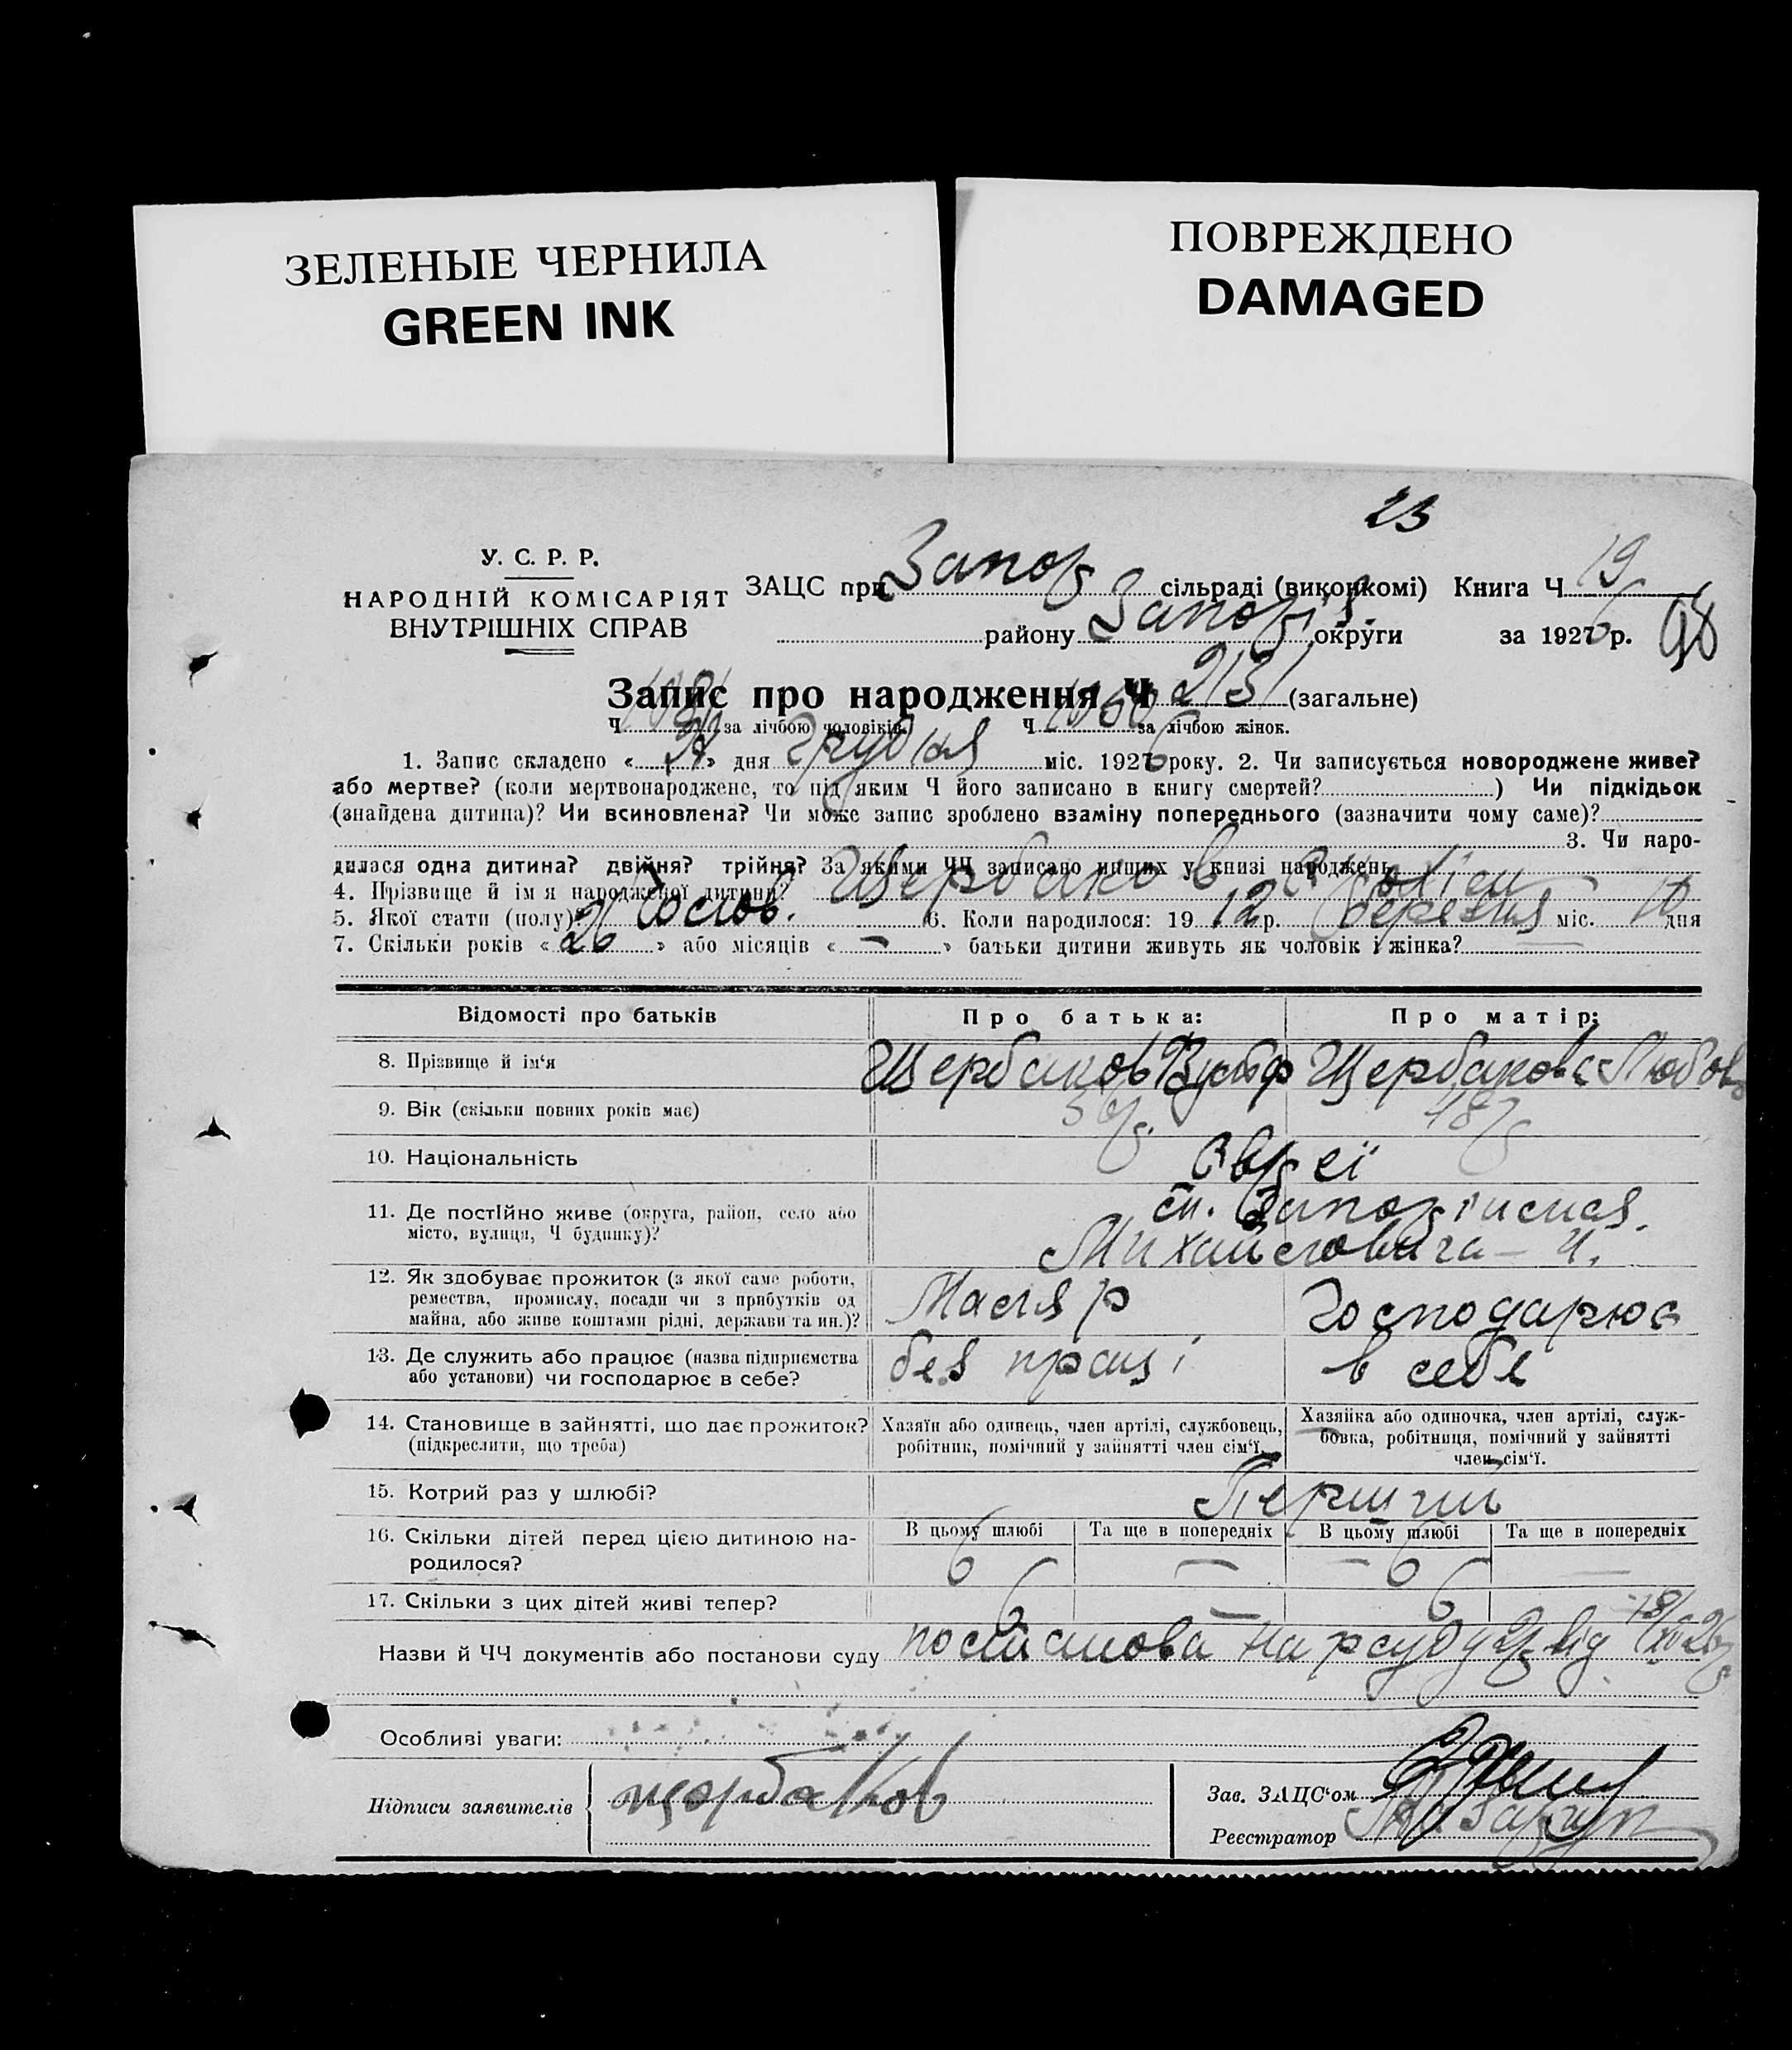 ЗЕЛЕНЫЕ ЧЕРНИЛА
GREEN INK
ПОВРЕЖДЕНО
DAMAGED
23
У. С. Р. Р.
НАРОДНІЙ КОМІСАРІЯТ
ВНУТРІШНІХ СПРАВ
ЗАЦС при Запор сільраді (виконкомі) Книга Ч 19
району Запоріз. округи за 1926 р. 98
Запис про народження Ч 2131 (загальне)
Ч за лічбою чоловіків. Ч 1060 за лічбою жінок.
1. Запис складено « » дня Грудня міс. 1926 року. 2. Чи записується новороджене живе?
або мертве? (коли мертвонароджене, то під яким Ч його записано в книгу смертей? ) Чи підкідьок
(знайдена дитина)? Чи всиновлена? Чи може запис зроблено взаміну попереднього (зазначити чому саме)?
3. Чи наро-
дилася одна дитина? двійня? трійня? За якими ЧЧ записано инших у книзі народжень
4. Прізвище й ім'я народженої дитини? Щербаков
5. Якої стати (полу)? Чолов. 6. Коли народилося: 19 12 р. березня міс. 10 дня
7. Скільки років « 26 » або місяців « — » батьки дитини живуть як чоловік і жінка?
Відомості про батьків
Про батька:
Про матір:
8. Прізвище й ім'я
Щербаков
Щербакова Любов
9. Вік (скільки повних років має)
48р
10. Національність
Євреї
11. Де постійно живе (округа, район, село або
місто, вулиця, Ч будинку)?
Михайловича — 4.
12. Як здобуває прожиток (з якої саме роботи,
ремества, промислу, посади чи з прибутків од
майна, або живе коштами рідні, держави та ин.)?
Маляр
Господарює
13. Де служить або працює (назва підприємства
або установи) чи господарює в себе?
без праці
в себе
14. Становище в зайнятті, що дає прожиток?
(підкреслити, що треба)
Хазяїн або одинець, член артілі, службовець,
робітник, помічний у зайнятті член сім'ї.
Хазяйка або одиночка, член артілі, служ-
бовка, робітниця, помічний у зайнятті
член сім'ї.
15. Котрий раз у шлюбі?
Перший
16. Скільки дітей перед цією дитиною на-
родилося?
В цьому шлюбі Та ще в попередніх В цьому шлюбі Та ще в попередніх
6 — 6 —
17. Скільки з цих дітей живі тепер?
6 — 6
Назви й ЧЧ документів або постанови суду постанова нарсуду від
Особливі уваги:
Підписи заявителів щербаков
Зав. ЗАЦС'ом
Реєстратор